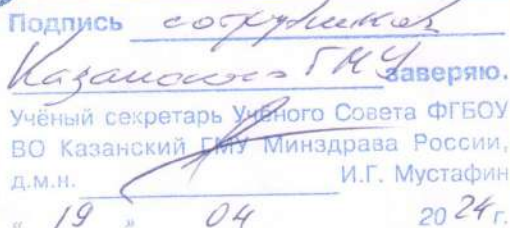 Подпись сотрудника
Казанского ГМУ заверяю.
Учёный секретарь Учёного Совета ФГБОУ
ВО Казанский ГМУ Минздрава России,
д.м.н. И.Г. Мустафин
« 19 » 04 2024 г.